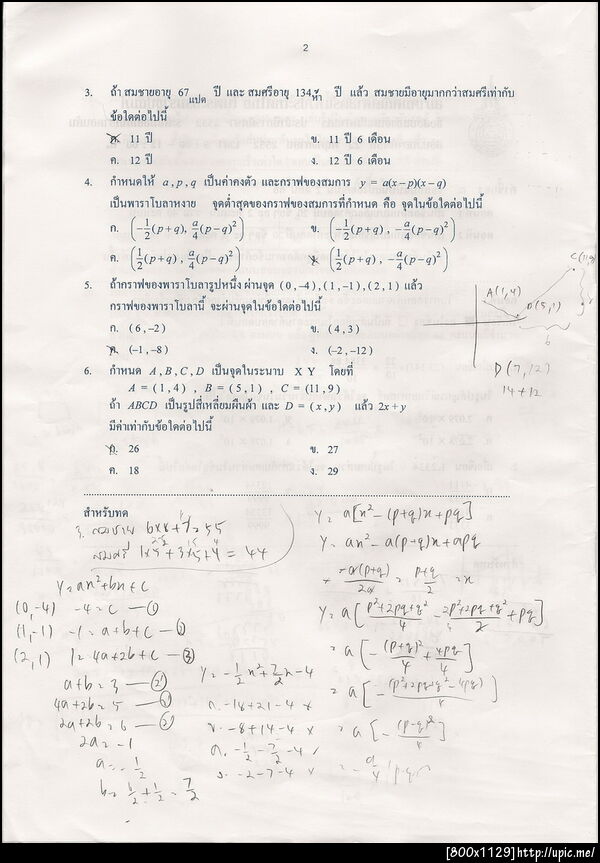 2
3. ถ้า สมชายอายุ 67แปด ปี และ สมศรีอายุ 134ห้า ปี แล้ว สมชายมีอายุมากกว่าสมศรีเท่ากับ
ข้อใดต่อไปนี้
ก. 11 ปี ข. 11 ปี 6 เดือน
ค. 12 ปี ง. 12 ปี 6 เดือน
4. กำหนดให้ a, p, q เป็นค่าคงตัว และกราฟของสมการ y = a(x−p)(x−q)
เป็นพาราโบลาหงาย จุดต่ำสุดของกราฟของสมการที่กำหนด คือ จุดในข้อใดต่อไปนี้
ก. (−1/2(p+q), a/4(p−q)²) ข. (−1/2(p+q), −a/4(p−q)²)
ค. (1/2(p+q), a/4(p−q)²) ง. (1/2(p+q), −a/4(p−q)²)
5. ถ้ากราฟของพาราโบลารูปหนึ่ง ผ่านจุด (0,−4), (1,−1), (2,1) แล้ว
กราฟของพาราโบลานี้ จะผ่านจุดในข้อใดต่อไปนี้
ก. (6,−2) ข. (4,3)
ค. (−1,−8) ง. (−2,−12)
A(1,4)
D(7,12)
14+12
6. กำหนด A, B, C, D เป็นจุดในระนาบ X Y โดยที่
A = (1,4) , B = (5,1) , C = (11,9)
ถ้า ABCD เป็นรูปสี่เหลี่ยมผืนผ้า และ D = (x,y) แล้ว 2x+y
มีค่าเท่ากับข้อใดต่อไปนี้
ก. 26 ข. 27
ค. 18 ง. 29
สำหรับทด
3. สมชาย 6x8+7=55
สมศรี 1x5²+3x5+4 = 44
y=ax²+bx+c
(0,-4) -4=c
(1,-1) -1=a+b+c
(2,1) 1=4a+2b+c
a+b=3
4a+2b=5
2a+2b=6
2a=-1
a=-1/2
b=1/2+1/2=7/2
y=-1/2x²+7/2x-4
-14+21-4 x
-8+14-4 x
-1/2-7/2-4
-2-7-4 x
y= a[x²-(p+q)x+pq]
y= ax²-a(p+q)x+apq
-a(p+q)/2a = p+q/2 = x
y= a[p²+2pq+q²/4 - 2p²+2pq+q²/2 + pq]
= a[-(p+q)²/4 + 4pq/4]
= a[-(p²+2pq+q²-4pq)/4]
= a[-(p-q)²/4]
[800x1129]http://upic.me/